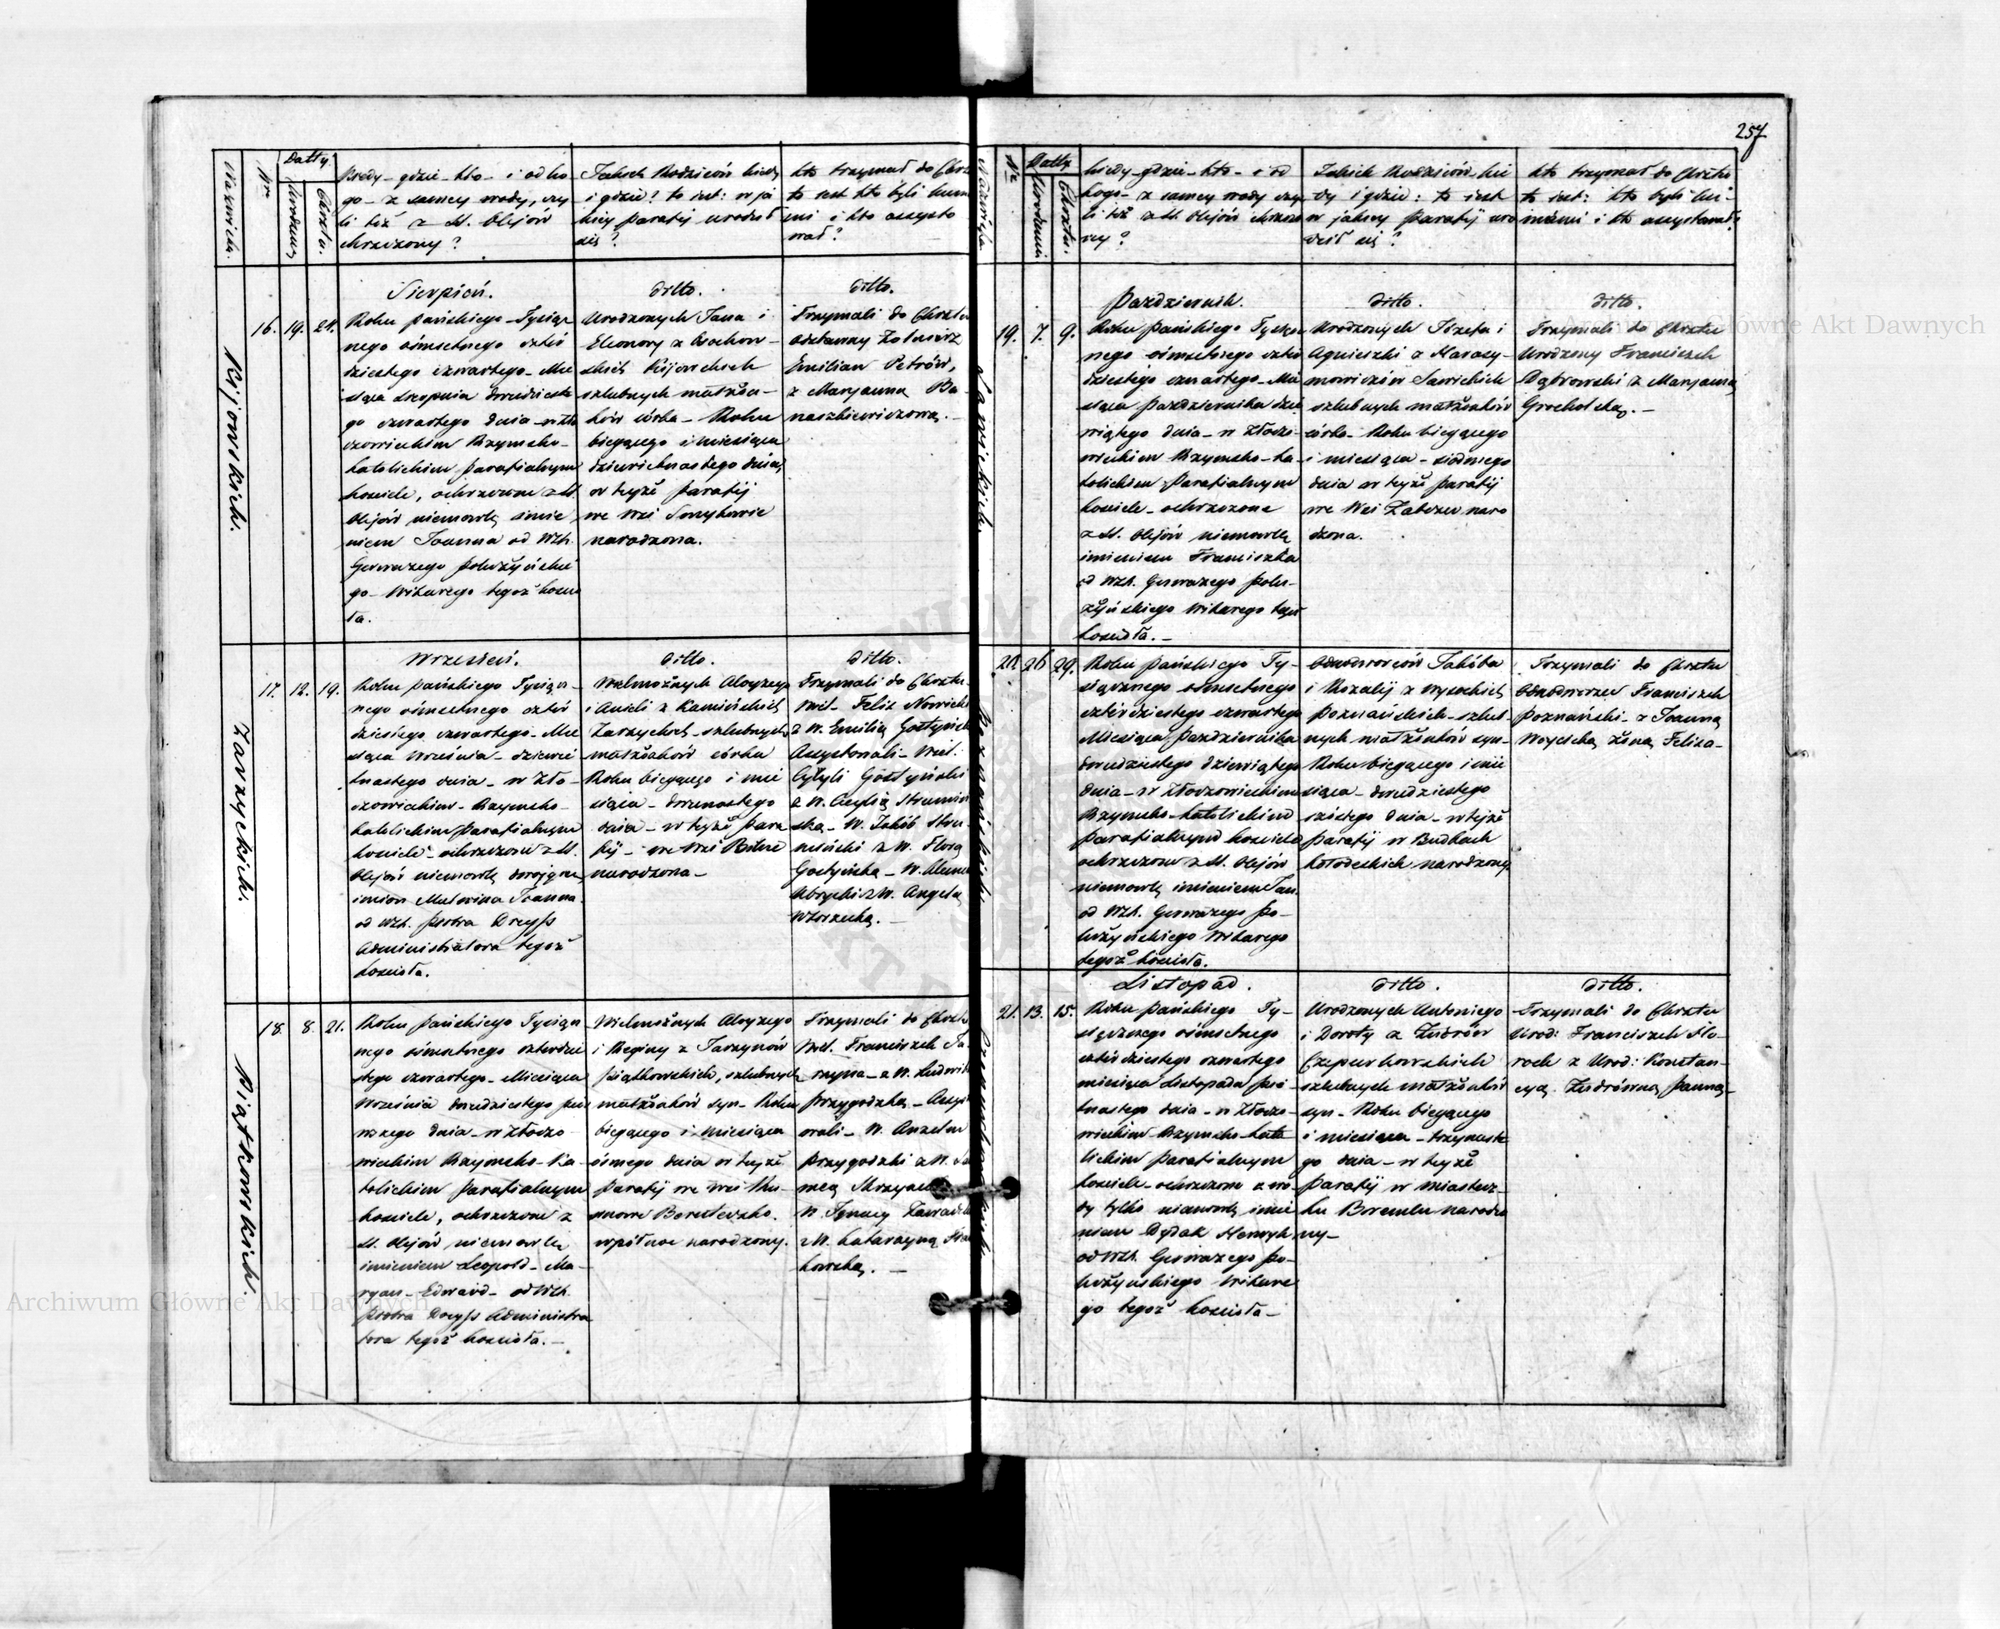 257
Nazwisko.
Nro
Datty
Urodzenia
Chrztu.
Kiedy - gdzie - kto - i od ko
go - z samey wody, czy
li też z SS. Olejów
chrzczony?
Jakich Rodziców kiedy
i gdzie? to iest: w ja
kiey parafij urodził
się?
kto trzymał do Chrz
to iest kto byli kum
mi i kto assysto
wał?
Kijowskich.
16. 19. 24.
Sierpień.
Roku pańskiego Tysiąc
nego ośmsetnego czter
dziestego czwartego - Mie
siąca Sierpnia dwudzieste
go czwartego dnia - w Zło
czowieckim Rzymsko -
katolickim parafialnym
kościele, ochrzczone z SS.
Olejów niemowlę imie
niem Joanna od WXh.
Gerwazego
go - Wikarego tegoż kości
ła.
ditto.
Urodzonych Jana i
Eleonory z
Kijowskich
szlubnych małżon -
ków córka - Roku
biegącego i miesiąca
dziewietnastego dnia,
w teyże parafij
we Wsi Smykowie
narodzona.
ditto.
Trzymali do Chrztu
odstawny Żołnierz
Emilian Petrów,
z Maryanną Ba
naszkiewiczową. -
Zarzyckich.
17. 12. 19.
Wrzesień.
Roku pańskiego Tysiąc -
nego ośmsetnego czter
dziestego czwartego - Mie
siąca Września - dziewie
tnastego dnia - w Zło -
czowieckim - Rzymsko -
katolickim parafialnym
kościele - ochrzczone z SS.
Olejów niemowlę dwojgiem
imion Malwina Joanna
od WXh. Piotra Dreyss
Administratora tegoż
kościoła.
ditto.
Wielmożnych Aloyzego
i Anieli z Kamińskich
Zarzyckich - szlubnych
małżonków córka
Roku biegącego i mie
siąca - dwunastego
dnia - w teyże Para
fij - we Wsi
narodzona -
ditto.
Trzymali do Chrztu -
Wiel. Felix Nowicki
z W. Emilią Gostyńsk
Assystowali - Wiel.
Cyryli Gostyński
z W. Cecylią Strumiń
ską - W. Jakób Stru -
miński z W. Florą
Gostyńską - W.
z W. Angelą
Piątkowskich.
18. 8. 21.
Roku pańskiego Tysiąc
nego ośmsetnego czterdzie
stego czwartego - Miesiąca
Września dwudziestego pier
wszego dnia - w Złoczo
wieckim Rzymsko - Ka
tolickim parafialnym
kościele, ochrzczone z
SS. Olejów niemowlę
imieniem Leopold - Ma -
ryan - Edward - od WXh.
Piotra Dreyss Administra
tora tegoż kościoła. -
Wielmożnych Aloyzego
i Reginy z Jarzynów
Piątkowskich, szlubnych
małżonków syn - Roku
biegącego i Miesiąca
ósmego dnia w teyże
parafij we Wsi
narodzony.
Trzymali do Chrztu
Wiel. Franciszek Ja
rzyna - z W. Ludwik
Przygodzką - Assyst
owali - W. Anzelm
Przygodzki z W.
W. Ignacy
z W. Katarzyną
Nazwisko
Nro
Datty
Urodzenia
Chrztu.
kiedy - gdzie - kto - i od
kogo - z samey wody czy
li też z SS. Olejów chrzczo
ny?
Jakich Rodziców kie
dy i gdzie: to iest
w jakiey parafij uro
dził się?
kto trzymał do Chrztu
to iest: kto byli ku -
mami i kto assystował?
Sawickich.
19. 7. 9.
Październik.
Roku Pańskiego Tysiąc
nego ośmsetnego czter
dziestego czwartego - Mie
siąca Października dzie
wiątego dnia - w Złoczo -
wieckim Rzymsko - ka
tolickim Parafialnym
kościele - ochrzczone
z SS. Olejów niemowlę
imieniem Franciszka
od WXh. Gerwazego
Wikarego tegoż
kościoła. -
ditto.
Urodzonych Józefa i
Agnieszki z Harasy -
mowiczów Sawickich
szlubnych małżonków
córka - Roku biegącego
i miesiąca - siódmego
dnia w teyże parafij
we Wsi Zabczu naro
dzona.
ditto.
Trzymali do Chrztu
Urodzony Franciszek
Dąbrowski z Maryanną
Grocholską. -
Poznańskich.
20. 26 29.
Roku Pańskiego Ty -
siącznego ośmsetnego
czterdziestego czwartego
Miesiąca Października
dwudziestego dziewiątego
dnia - w Złoczowieckim
Rzymsko - katolickim
parafialnym kościele
ochrzczone z SS. Olejów
niemowlę imieniem Jan
od WXh. Gerwazego
Wikarego
tegoż kościoła.
Odnodworców Jakóba
i Rozalij z Wysockich
Poznańskich - szlub -
nych małżonków syn -
Roku biegącego i mie
siąca - dwudziestego
szóstego dnia - w teyże
parafij w Budkach
narodzony.
Trzymali do Chrztu
Odnodworzec Franciszek
Poznański - z Joanną
Woycicką żoną Felixa -
21. 13. 15.
Listopad.
Roku pańskiego Ty -
siącznego ośmsetnego
czterdziestego czwartego
miesiąca Listopada pię
tnastego dnia - w Złoczo -
wieckim Rzymsko - kato
lickim parafialnym
kościele - ochrzczone z wo
dy tylko niemowlę imie
niem Dydak Henryk
od WXh. Gerwazego
Wikare
go tegoż kościoła -
ditto.
Urodzonych Antoniego
i Doroty z
szlubnych małżonków
syn - Roku biegącego
i miesiąca - trzynaste
go dnia - w teyże
parafij w miastecz -
ku Boremlu narodzo
ny -
ditto.
Trzymali do Chrztu
Urod: Franciszek
z Urod: Konstan -
cyą panną -
Archiwum Główne Akt Dawnych
Archiwum Główne Akt Dawnych